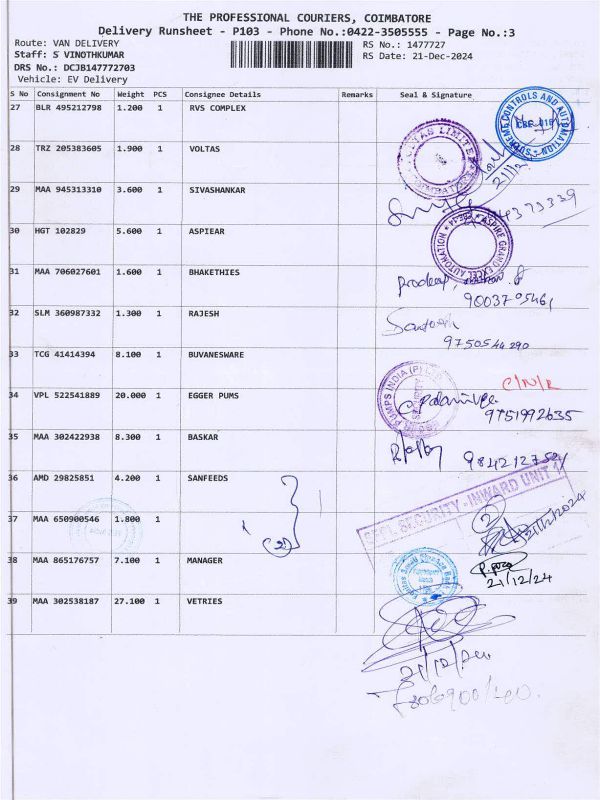 THE PROFESSIONAL COURIERS, COIMBATORE
Delivery Runsheet - P103 - Phone No.:0422-3505555 - Page No.:3
Route: VAN DELIVERY
Staff: S VINOTHKUMAR
DRS No.: DCJB147772703
Vehicle: EV Delivery
RS No.: 1477727
RS Date: 21-Dec-2024
S No Consignment No Weight PCS Consignee Details Remarks Seal & Signature
27 BLR 495212798 1.200 1 RVS COMPLEX
28 TRZ 205383605 1.900 1 VOLTAS
21/12
29 MAA 945313310 3.600 1 SIVASHANKAR
30 HGT 102829 5.600 1 ASPIEAR
EXCEL AUTOMATION
31 MAA 706027601 1.600 1 BHAKETHIES
9003705461
32 SLM 360987332 1.300 1 RAJESH
Santosh
9750544290
33 TCG 41414394 8.100 1 BUVANESWARE
C/N/R
34 VPL 522541889 20.000 1 EGGER PUMS
PUMPS INDIA (P) LTD
9751992635
35 MAA 302422938 8.300 1 BASKAR
36 AMD 29825851 4.200 1 SANFEEDS
SECURITY - INWARD UNIT 1
37 MAA 650900546 1.800 1
38 MAA 865176757 7.100 1 MANAGER
21/12/24
39 MAA 302538187 27.100 1 VETRIES